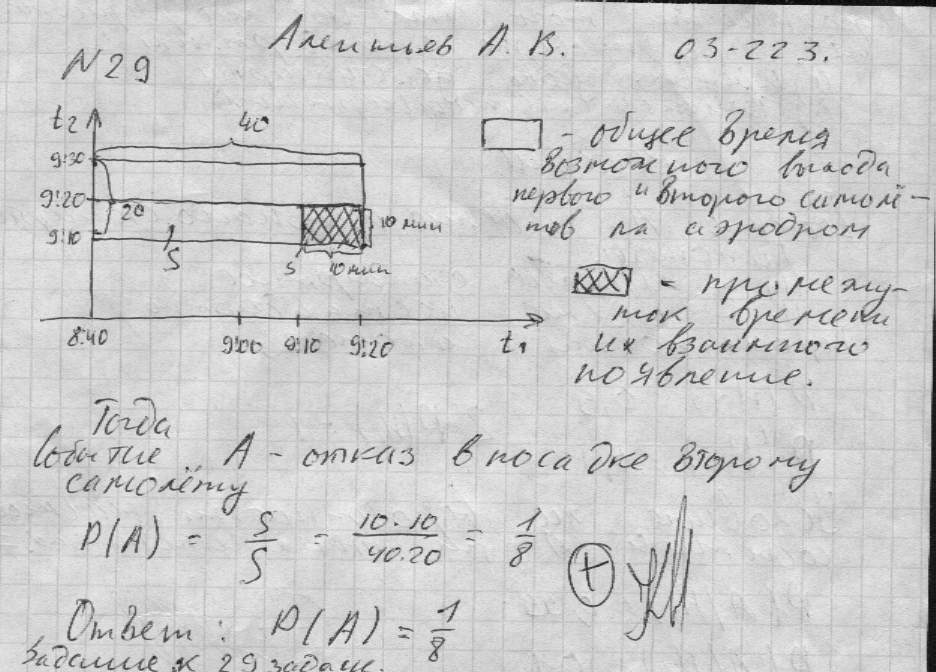 Алентьев А. В. 03-223.
N29
t2
40
9:30
9:20
20
10 мин
9:10
S
s
10 мин
8:40
9:00
9:10
9:20
t1
- общее время
возможного выхода
первого и второго самолё-
тов на аэродром
- промежу-
ток времени
их взаимного
появление.
Тогда
Событие A - отказ в посадке второму
самолёту
P(A) = s/S = 10·10/40·20 = 1/8
+
Ответ: P(A) = 1/8
Задание к 29 задаче.